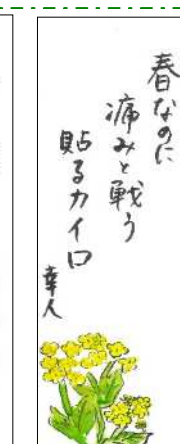 春なのに
痛みと戦う
貼るカイロ
幸人